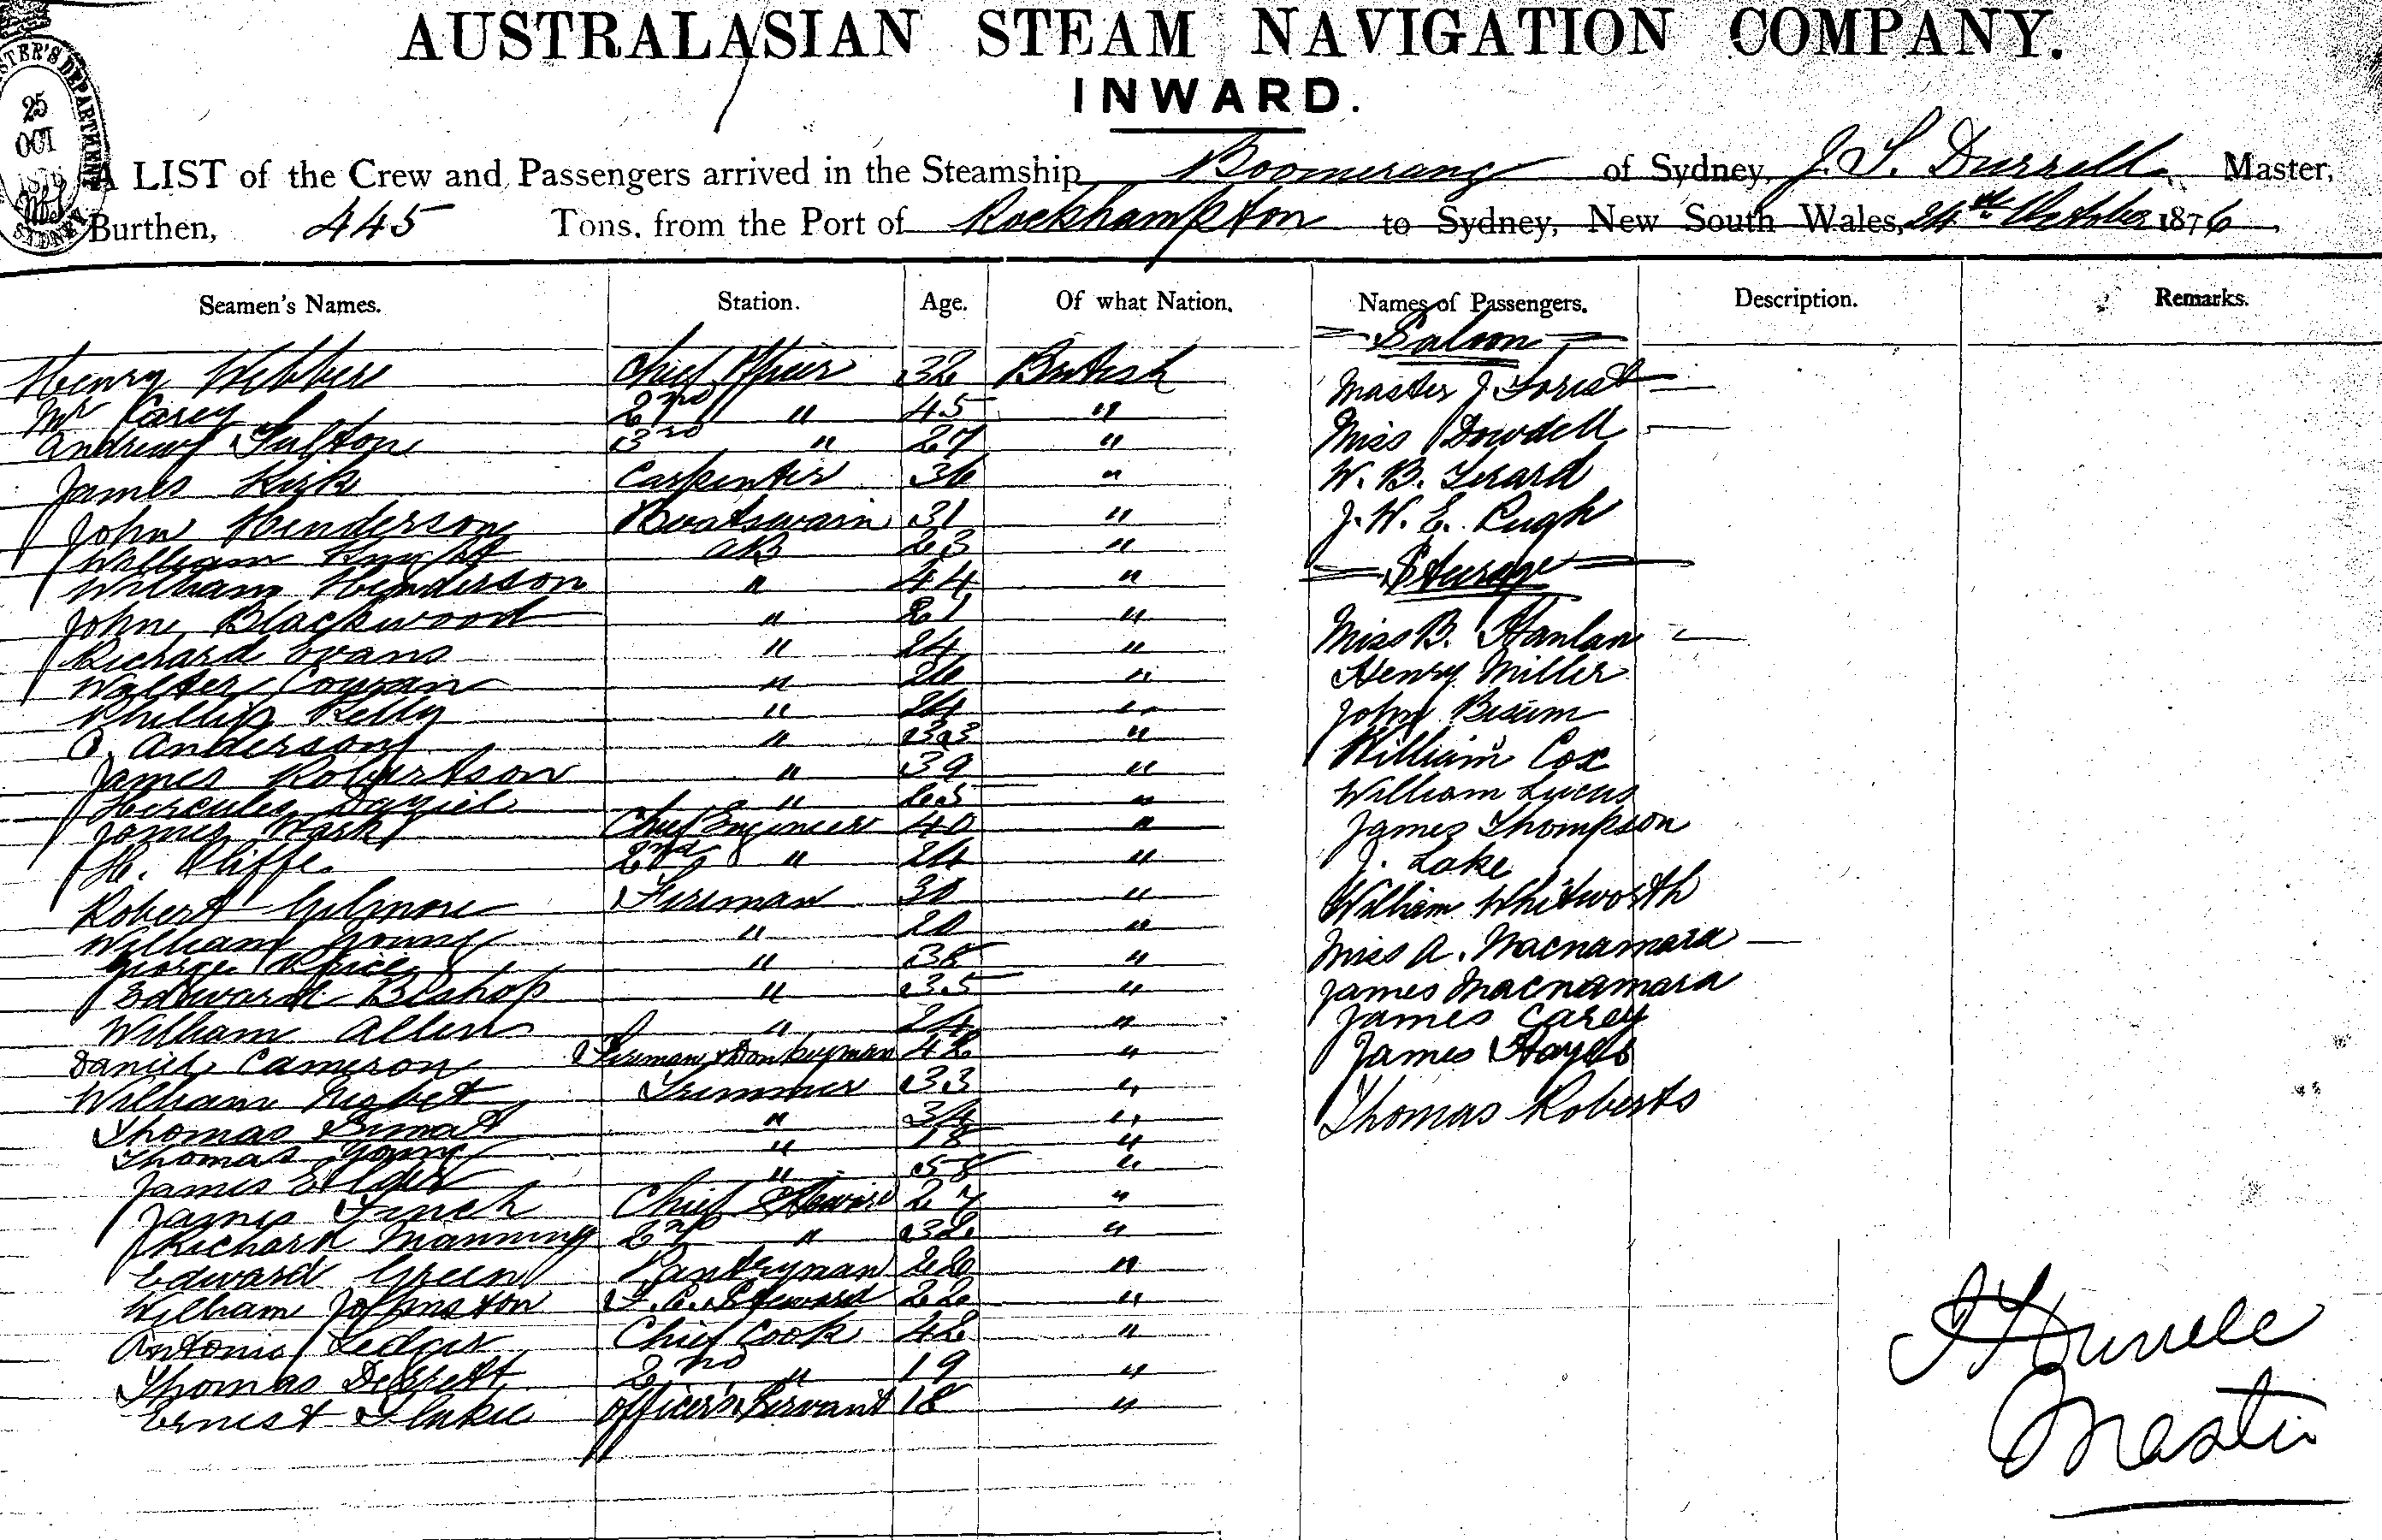 AUSTRALASIAN STEAM NAVIGATION COMPANY.
INWARD.
25
OCT
1876
SYDNEY
A LIST of the Crew and Passengers arrived in the Steamship Boomerang of Sydney, J. S. Durrell Master,
Burthen, 445 Tons, from the Port of Rockhampton to Sydney, New South Wales, 24th October 1876
Seamen's Names. Station. Age. Of what Nation. Names of Passengers. Description. Remarks.
Henry Webber Chief Officer 32 British
Mr Carey 2nd " 45 "
Andrew Fulton 3rd " 27 "
James Kirk Carpenter 36 "
John Henderson Boatswain 31 "
William Knight AB 23 "
William Henderson " 44 "
John Blackwood " 21 "
Richard Evans " 24 "
Walter " 26 "
Phillip Kelly " 24 "
Anderson " 33 "
James Robertson " 39 "
Hercules Dalziel " "
James Wark Chief Engineer 40 "
H. Cliffe 2nd " 24 "
Robert Gilmore Fireman 30 "
William Young " 20 "
George Price " "
Edward Bishop " 35 "
William Allen " 24 "
Daniel Cameron Fireman & Donkeyman 42 "
William Nisbet Trimmer 33 "
Thomas " 34 "
Thomas Young " 18 "
James Elder " "
James Finch Chief Steward 27 "
Richard Manning 2nd " 32 "
Edward Green Pantryman "
William Johnston F.C. Steward 22 "
Antonio Chief Cook 42 "
Thomas 2nd " 19 "
Ernest Officer's Servant 18 "
Saloon
Master J. Forest
Miss Dowdell
W. B.
J. W. E. Pugh
Steerage
Miss B. Hanlan
Henry Miller
John
William Cox
William Lucas
James Thompson
J. Lake
William Whitworth
Miss A. Macnamara
James Macnamara
James Carey
James Hayes
Thomas Roberts
Durrell
Master